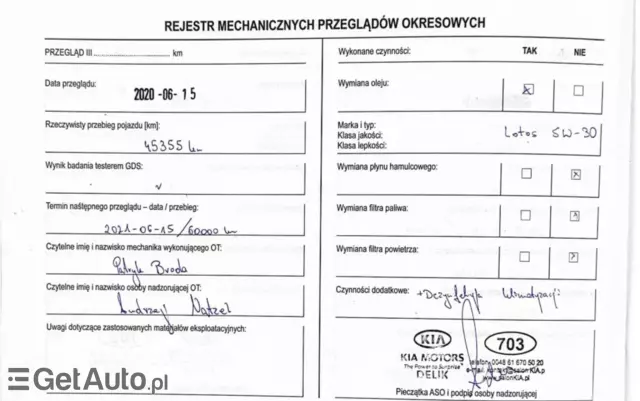 REJESTR MECHANICZNYCH PRZEGLĄDÓW OKRESOWYCH
PRZEGLĄD III................ km
Data przeglądu:
2020-06-15
Rzeczywisty przebieg pojazdu [km]:
45355 km
Wynik badania testerem GDS:
v
Termin następnego przeglądu – data / przebieg:
2021-06-15/60000 km
Czytelne imię i nazwisko mechanika wykonującego OT:
Patryk Broda
Czytelne imię i nazwisko osoby nadzorującej OT:
Andrzej
Uwagi dotyczące zastosowanych materiałów eksploatacyjnych:
Wykonane czynności: TAK NIE
Wymiana oleju: x
Marka i typ: Lotos 5W-30
Klasa jakości:
Klasa lepkości:
Wymiana płynu hamulcowego: x
Wymiana filtra paliwa: x
Wymiana filtra powietrza: x
Czynności dodatkowe:
KIA 703
KIA MOTORS
The Power to Surprise
DELIK
telefony 0048 61 670 50 20
www.salonKIA.pl
Pieczątka ASO i podpis osoby nadzorującej
GetAuto.pl